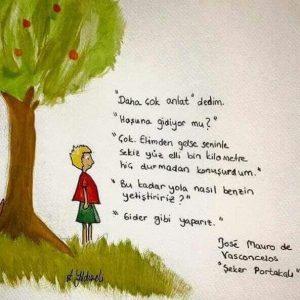 "Daha çok anlat" dedim.
"Hoşuna gidiyor mu?"
"Çok. Elimden gelse seninle
sekiz yüz elli bin kilometre
hiç durmadan konuşurdum."
"Bu kadar yola nasıl benzin
yetiştiririz?"
"Gider gibi yaparız."
José Mauro de
Vasconcelos
"Şeker Portakalı"